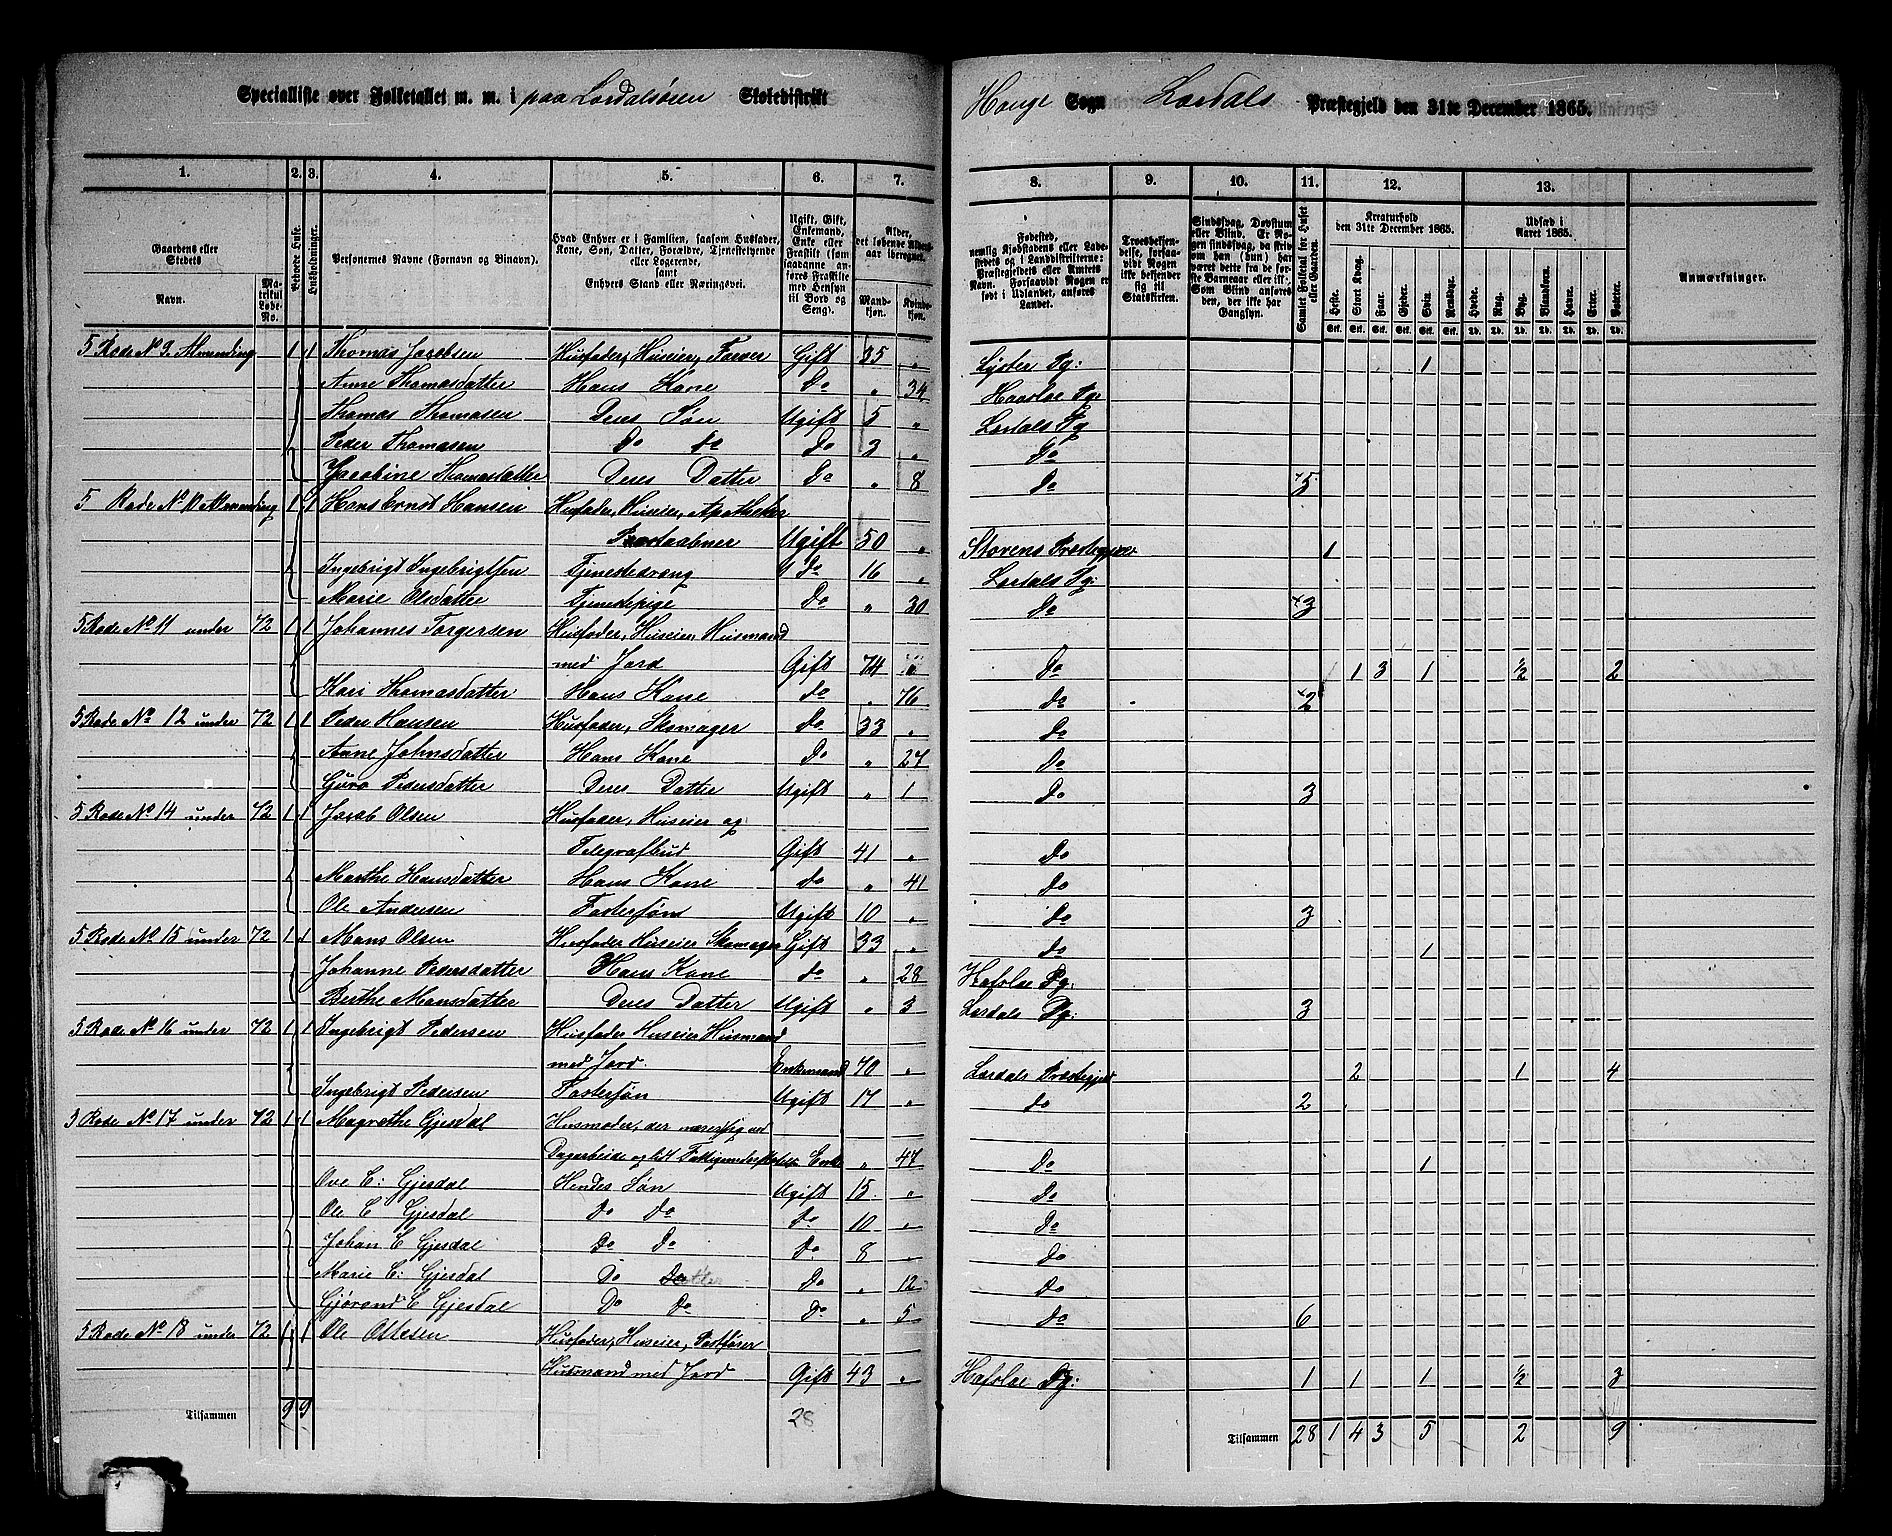 Specialliste over Folketallet m. m. i paa Lærdalsøren Skoledistrikt
Hauge Sogn Lærdals Præstegjeld den 31te December 1865.
1. 2. 3. 4. 5. 6. 7. 8. 9. 10. 11. 12. 13.
Gaardens eller Stedets Navn. Matrikul Løbe-No. Beboede Huse. Husholdninger. Personernes Navne (Fornavn og Binavn).
Hvad Enhver er i Familien, saasom Husfader, Kone, Søn, Datter, Forældre, Tjenestetyende eller Logerende, samt Enhvers Stand eller Næringsvei.
Ugift, Gift, Enkemand, Enke eller Fraskilt (som saadanne anføres Fraskilte med Hensyn til Bord og Seng).
Alder, det løbende Alders-aar iberegnet. Mandkjøn. Kvindekjøn.
Fødested, nemlig Kjøbstadens eller Ladestedets og i Landdistrikterne: Præstegjeldets eller Amtets Navn. Forsaavidt Nogen er født i Udlandet, anføres Landet.
Troesbekjendelse, forsaavidt Nogen ikke bekjender sig til Statskirken.
Sindssvag, Døvstum eller Blind. Er Nogen sindssvag, da skriv om han (hun) har været dette fra de første Barneaar eller ikke. Som Blind anføres den, der ikke har Gangsyn.
Samlet Folketal for Huset eller Gaarden.
Kreaturhold den 31te December 1865. Heste. Stort Kvæg. Faar. Gjeder. Sviin. Rensdyr.
Udsæd i Aaret 1865. Hvede. Rug. Byg. Blandkorn. Havre. Erter. Poteter.
Anmærkninger.
5 Rode No 9. Almending 1 1 Thomas Jacobsen Husfader, Huseier, Farver Gift 35 „ Lyster Pg: 1
Anne Thomasdatter Hans Kone Do „ 34 Haasloe Pg:
Thomas Thomasen Deres Søn Ugift 5 „ Lærdals Pg
Peder Thomasen Do do Do 3 „ Do
Jacobine Thomasdatter Deres Datter Do „ 8 Do 5
5 Rode No 10 Almending 1 1 Hans Ernst Hansen Husfader, Huseier, Apotheker
Postaabner Ugift 50 „ Størens Præstegjeld 1
Ingebrigt Ingebrigtsen Tjenestedreng Do 16 „ Lærdals Pg:
Marie Olsdatter Tjenestepige Do „ 30 Do 3
5 Rode No 11 under 72 1 1 Johannes Torgersen Husfader, Huseier, Husmand
med Jord Gift 74 „ Do 1 3 1 ½ 2
Kari Thomasdatter Hans Kone do „ 76 do 2
5 Rode No 12 under 72 1 1 Peder Hansen Husfader, Skomager do 33 „ Do
Anne Johnsdatter Hans Kone Do „ 27 Do
Guro Pedersdatter Deres Datter Ugift „ 1 Do 3
5 Rode No 14 under 72 1 1 Jacob Olsen Husfader, Huseier og
Telegrafbud Gift 41 „ Do
Marthe Hansdatter Hans Kone do „ 41 Do
Ole Andersen Fostersøn Ugift 10 „ Do 3
5 Rode No 15 under 72 1 1 Mons Olsen Husfader Huseier Skomager Gift 33 „ do 1
Johanne Pedersdatter Hans Kone do „ 28 Hafsloe Pg:
Berthe Monsdatter Deres Datter Ugift „ 3 Lærdals Pg: 3
5 Rode No 16 under 72 1 1 Ingebrigt Pedersen Husfader Huseier Husmand
med Jord. Enkemand 70 „ Lærdals Præstegjeld 2 1 4
Ingebrigt Pedersen Fostersøn Ugift 17 „ do 2
3 Rode No 17 under 72 1 1 Magrethe Gjesdal Husmoder, der nærer sig ved
Dagarbeide og lidt Fattigunderstøttelse Enke „ 47 Do 1
Ove E: Gjesdal Hendes Søn Ugift 15 „ Do
Ole E Gjesdal Do do do 10 „ Do
Johan E Gjesdal Do Do Do 8 „ Do
Marie E: Gjesdal Do Datter Do „ 12 Do
Gjørond E Gjesdal Do do Do „ 5 Do 6
5 Rode No 18 under 72 1 1 Ole Ottesen Husfader, Huseier, Postfører
Husmand med Jord Gift 43 „ Hafsloe Pg: 1 1 1 ½ 3
Tilsammen 9 9 28
Tilsammen 28 1 4 3 5 2 9